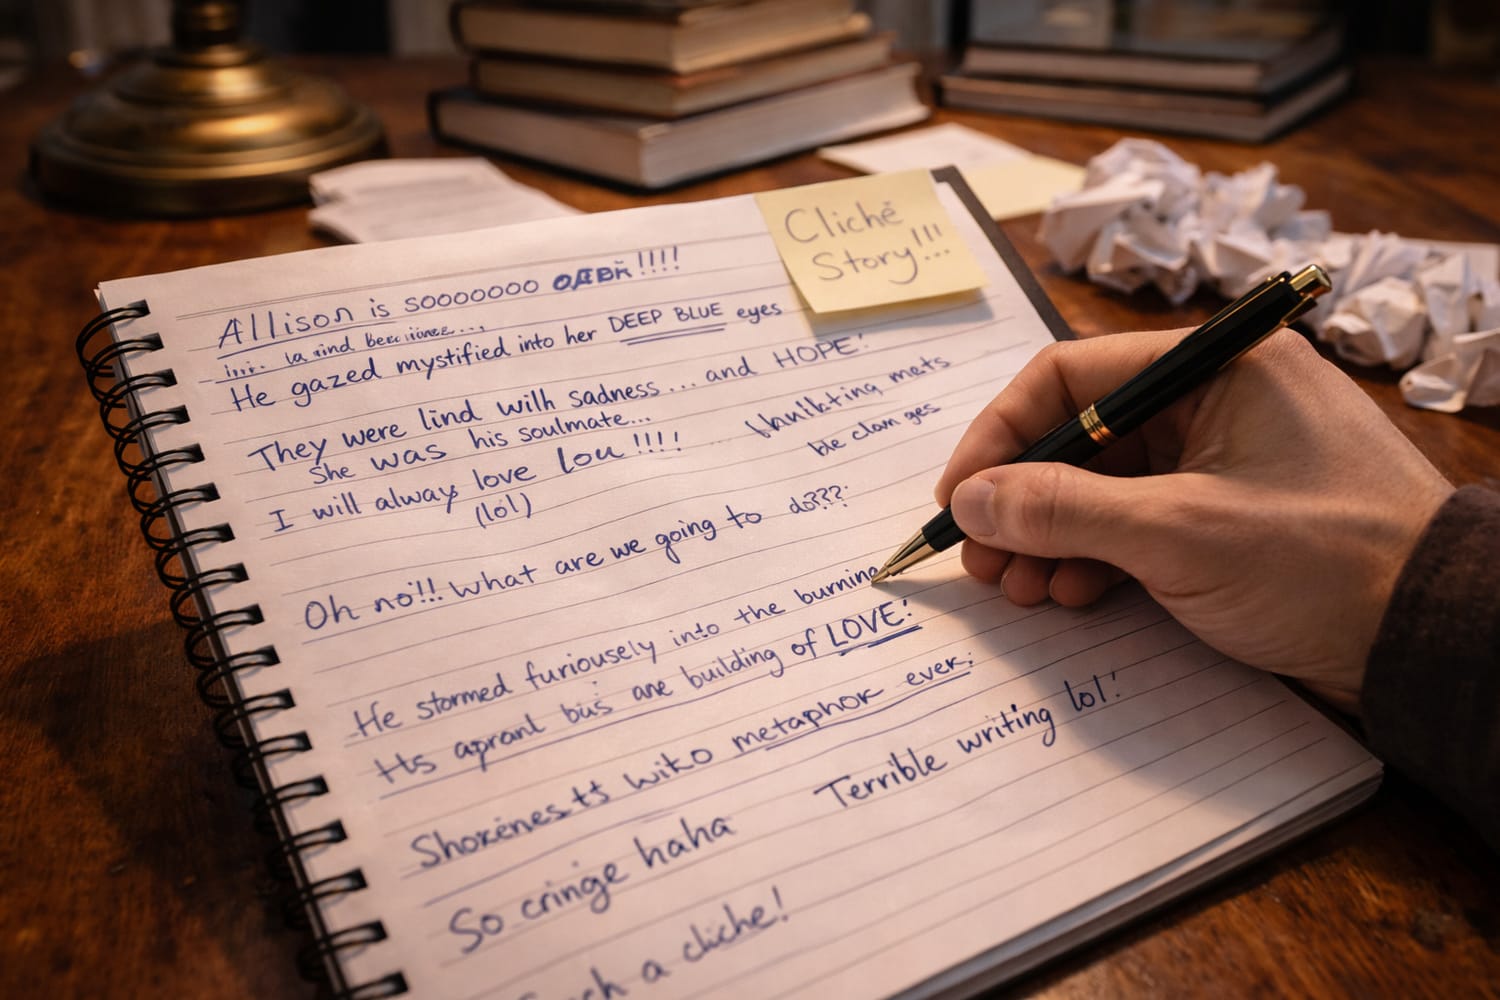 Cliché
Story!!!
Allison is soooooooo !!!!
He gazed mystified into her DEEP BLUE eyes
They were lind with sadness... and HOPE!
She was his soulmate...
I will always love lou!!!!
(lol)
Oh no!!! What are we going to do???
He stormed furiousely into the burning
building of LOVE!
metaphor ever.
Terrible writing lol!
So cringe haha
a cliche!